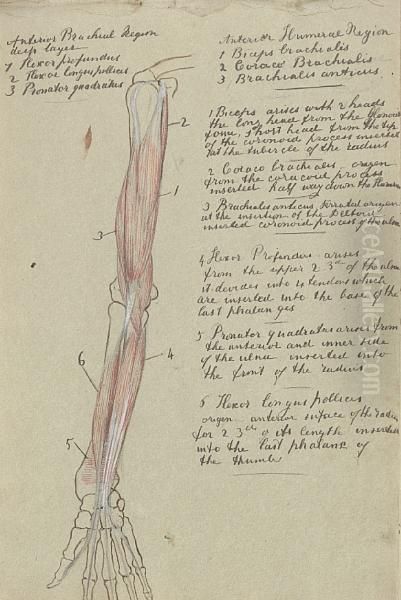 Anterior Brachial Region
deep layer
1 Flexor profundus
2 Flexor longus pollicis
3 Pronator quadratus
Anterior Humeral Region
1 Biceps brachialis
2 Coraco Brachialis
3 Brachialis anticus
1 Biceps arises with 2 heads
the long head from the Glenoid
fossa, short head from the tip
of the coronoid process inserted
at the tubercle of the radius
2 Coraco brachialis origen
from the coracoid process
inserted half way down the Humerus
3 Brachialis anticus, origen
at the insertion of the Deltoid
inserted coronoid process of the ulna
4 Flexor Profundus arises
from the upper 2 3rd of the ulna
it devides into 4 tendons which
are inserted into the base of the
last phalanges
5 Pronator quadratus arises from
the anterior and inner side
of the ulna inserted into
the front of the radius
6 Flexor longus pollicis
origen anterior surface of the radius
for 2 3rds of its length inserted
into the last phalanx of
the thumb
2
1
3
4
6
5